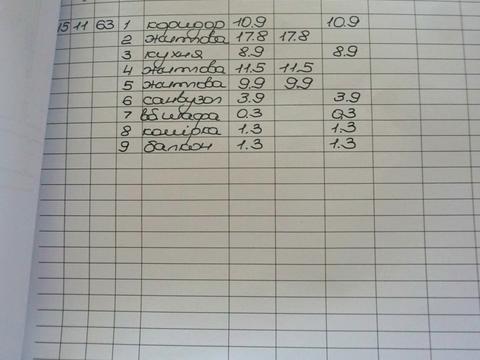 15 11 63 1 коридор 10.9 10.9
2 житлова 17.8 17.8
3 кухня 8.9 8.9
4 житлова 11.5 11.5
5 житлова 9.9 9.9
6 санвузол 3.9 3.9
7 вб шафа 0.3 0.3
8 комірка 1.3 1.3
9 балкон 1.3 1.3